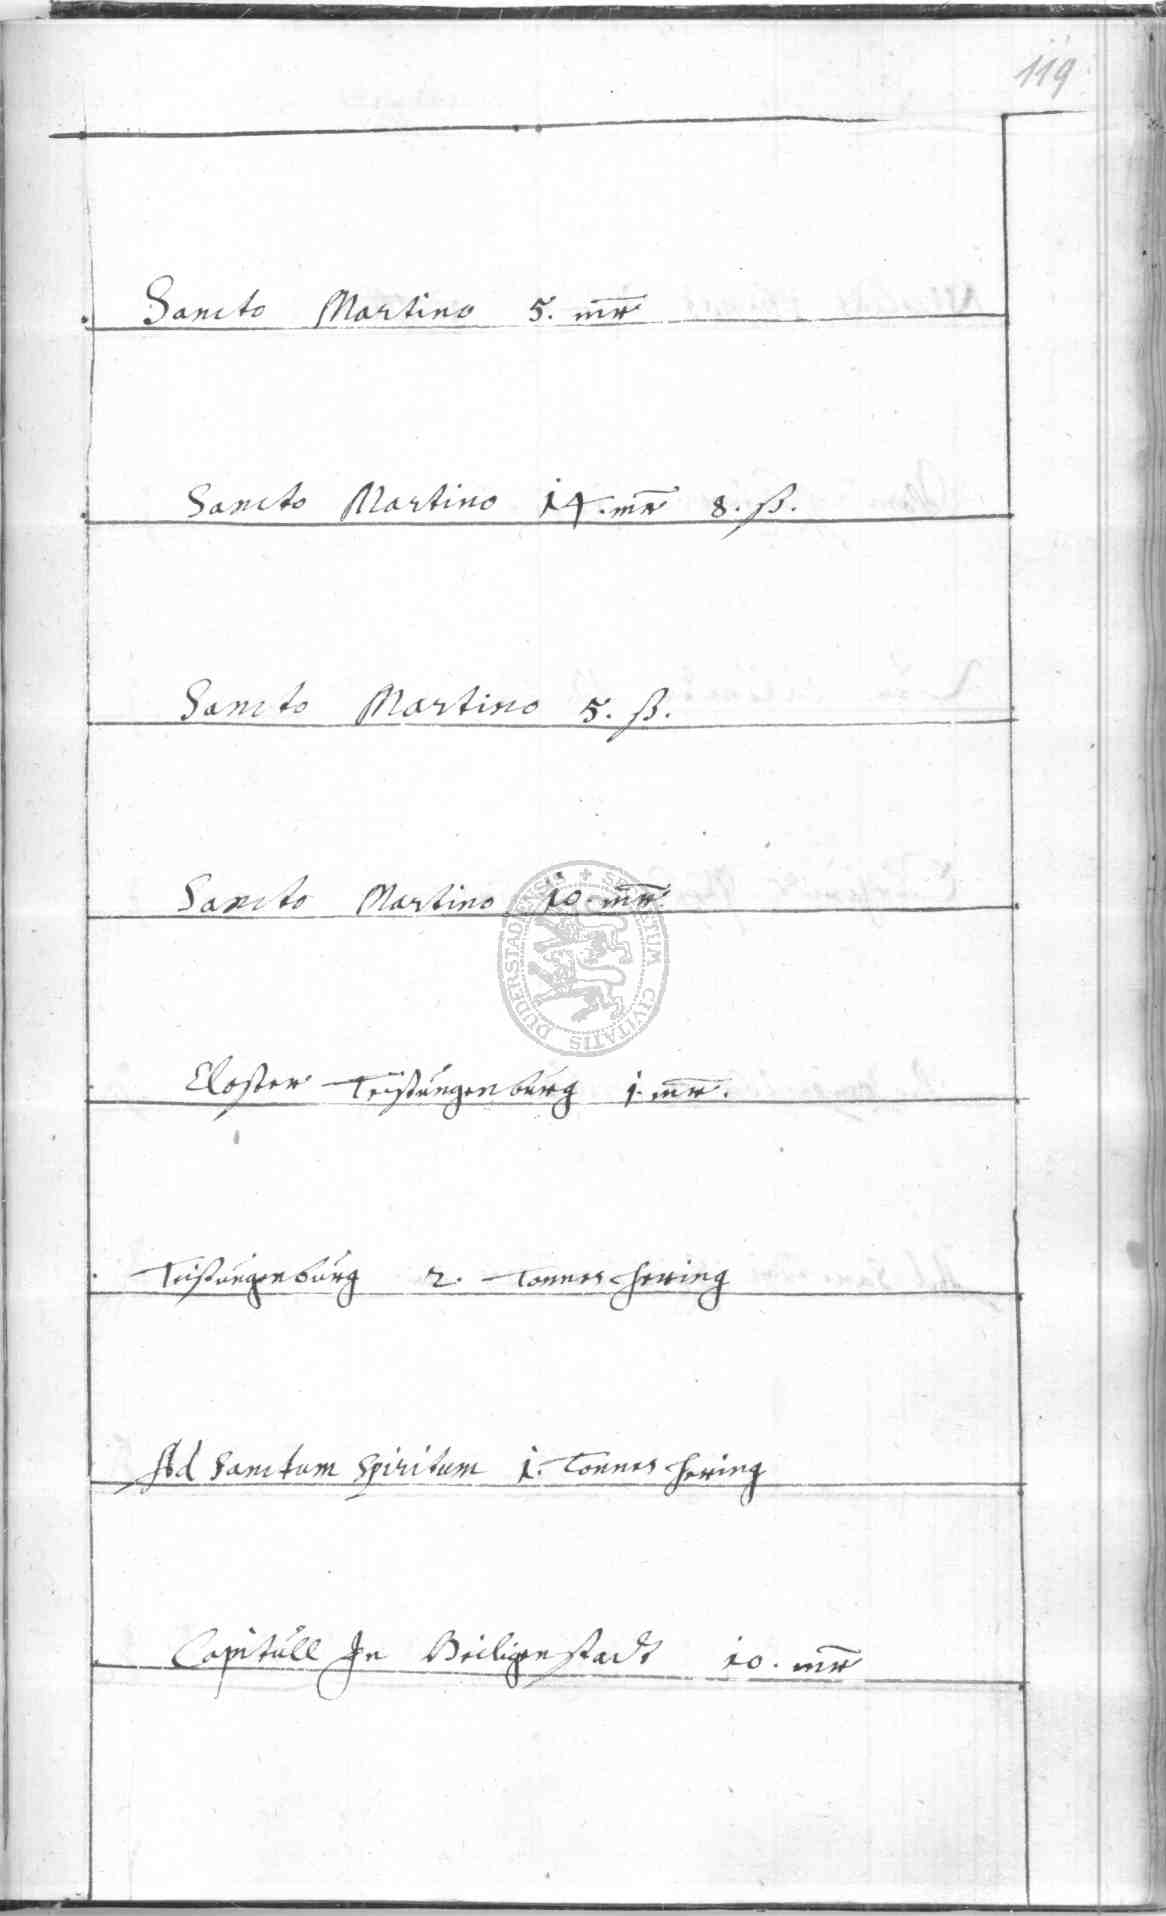 119
Sancto Martino 5. mr
Sancto Martino 14. mr 8. ß.
Sancto Martino 5. ß.
Sancto Martino 10. mr
SECRETUM CIVITATIS DUDERSTADIENSIS
Closter Teistungenburg 1. mr.
Teistungenburg 2. Tonnes hering
Ad Sanctum Spiritum 1. Tonnes hering
Capitull In Heiligenstadt 10. mr